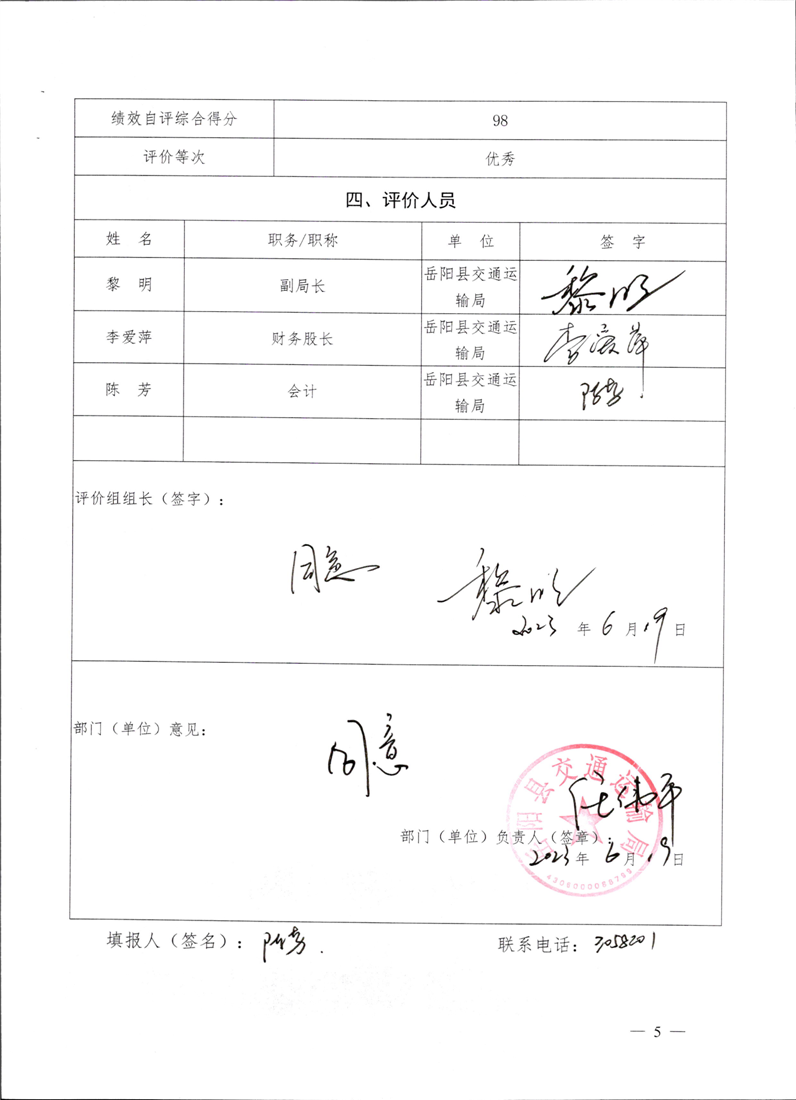 绩效自评综合得分 98
评价等次 优秀
四、评价人员
姓 名 职务/职称 单 位 签 字
黎 明 副局长 岳阳县交通运输局 黎明
李爱萍 财务股长 岳阳县交通运输局 李爱萍
陈 芳 会计 岳阳县交通运输局 陈芳
评价组组长(签字):
同意 黎明
2023 年 6 月 19 日
部门(单位)意见:
同意
岳阳县交通运输局
部门(单位)负责人(签章):
2023 年 6 月 19 日
填报人(签名): 陈芳. 联系电话: 3058201
— 5 —